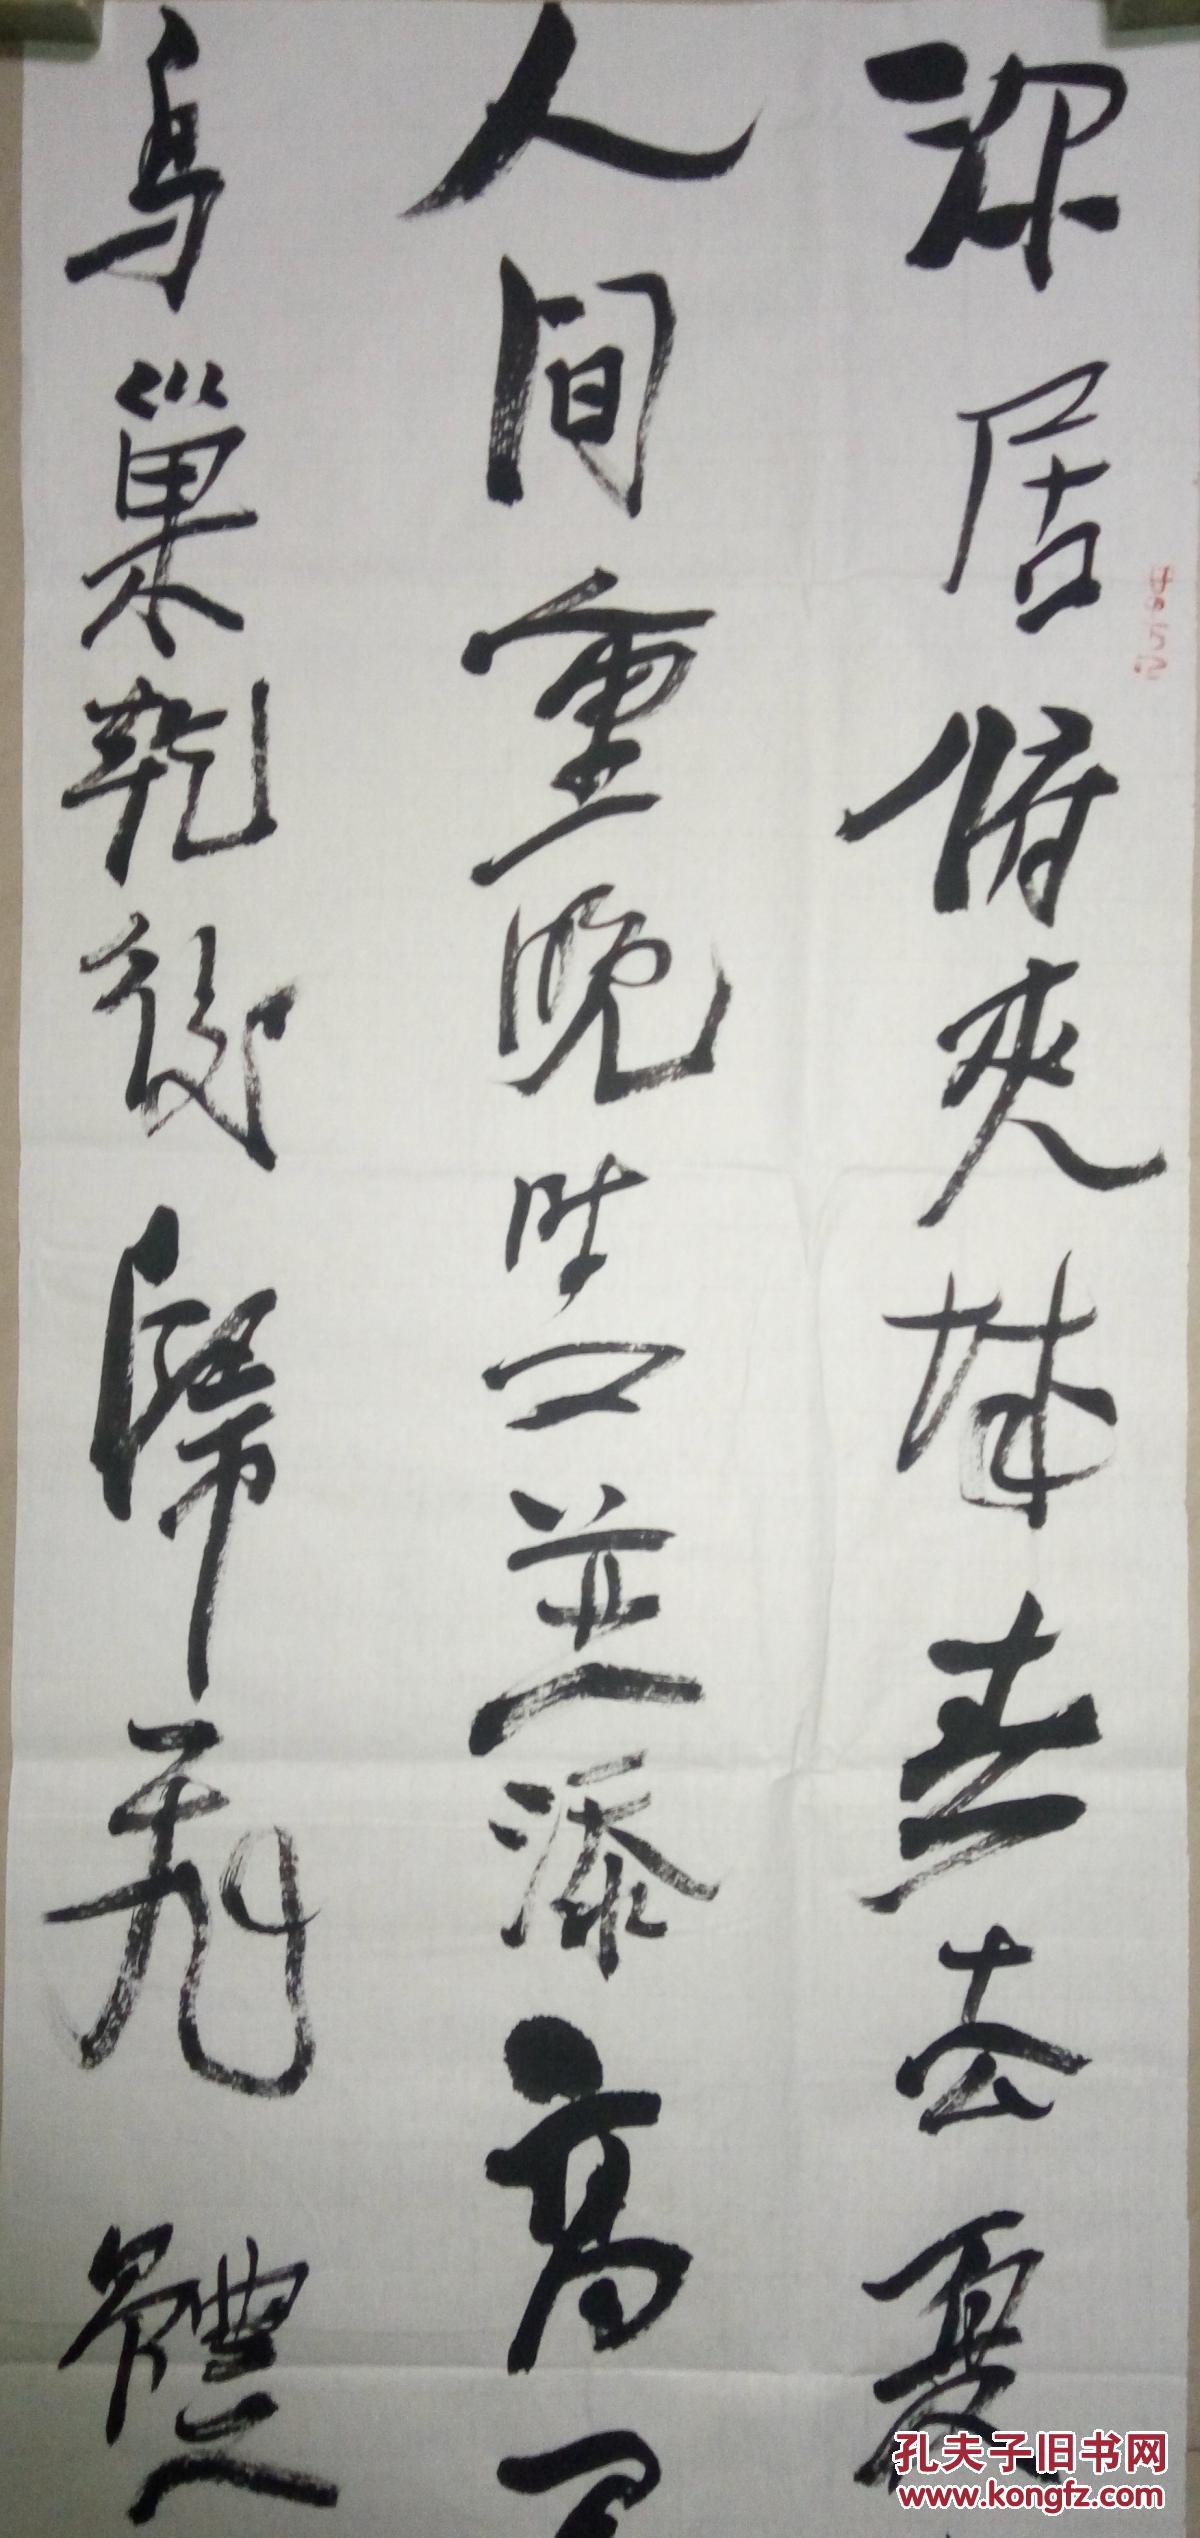 深居俯夾城春去夏
人间重晚晴並添高
鳥巢乾後歸飛體
孔夫子旧书网
www.kongfz.com